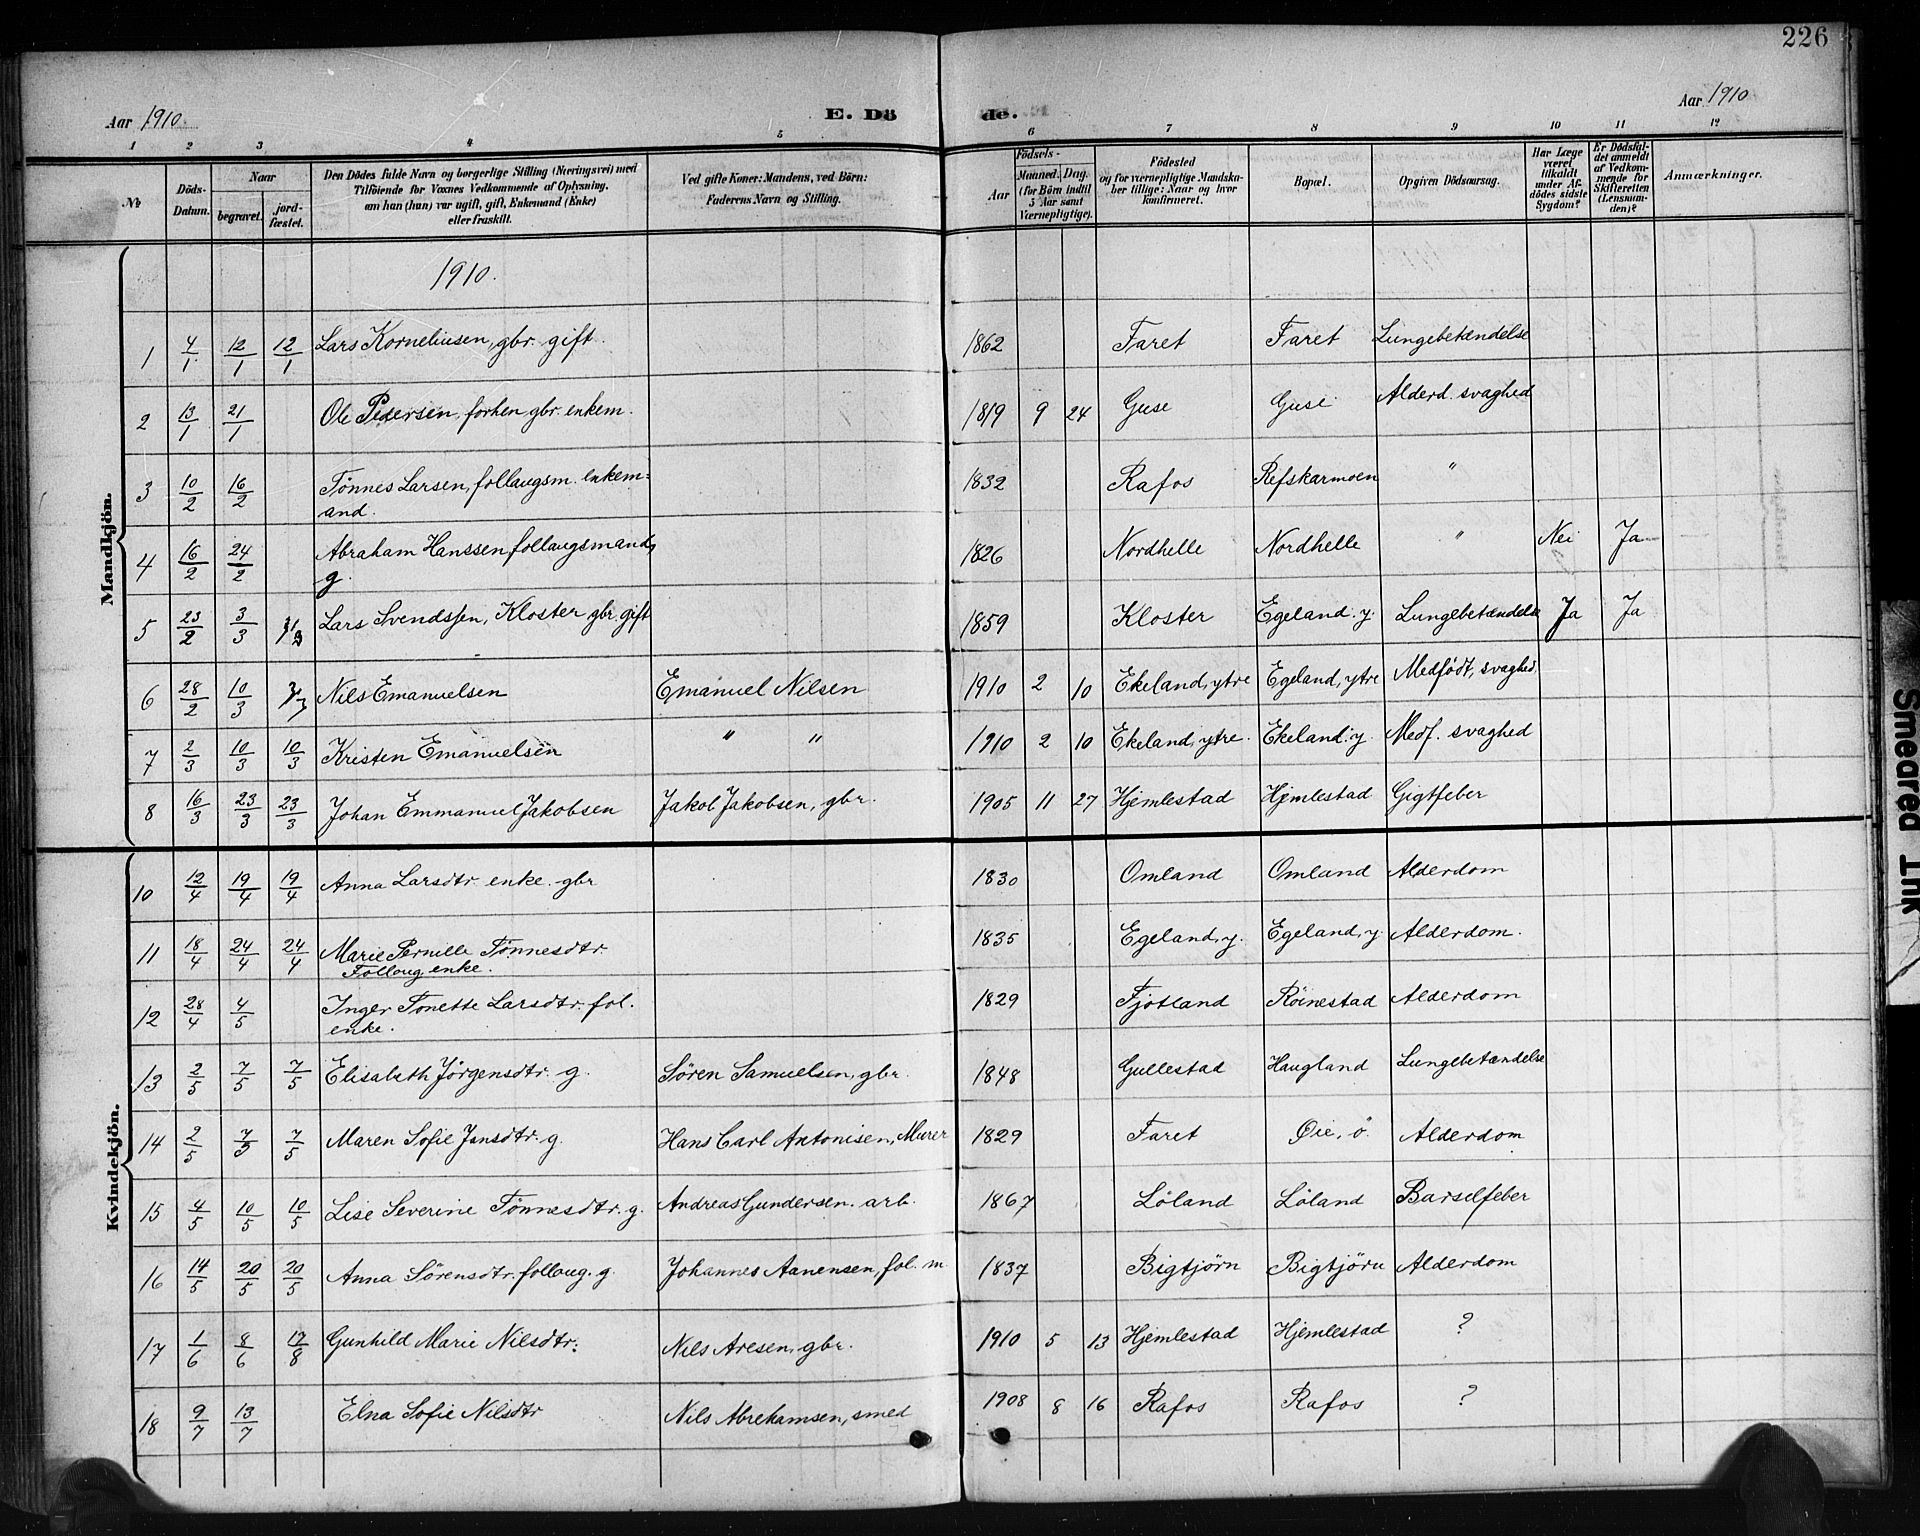 226
Aar 1910.
E. Dö
de.
Aar 1910
1 2 3 4 5 6 7 8 9 10 11 12
No
Döds-Datum.
Naar
begravet.
jord-fæstet.
Den Dödes fulde Navn og borgerlige Stilling (Næringsvei) med
Tilföiende for Voxnes Vedkommende af Oplysning,
om han (hun) var ugift, gift, Enkemand (Enke)
eller fraskilt.
Ved gifte Koner: Mandens, ved Börn:
Faderens Navn og Stilling.
Födsels-
Aar
Maaned. Dag.
(for Börn indtil
5 Aar samt
Værnepligtige).
Födested
og for værnepligtige Mandska-
ber tillige: Naar og hvor
konfirmeret.
Bopæl.
Opgiven Dödsaarsag.
Har Læge
været
tilkaldt
under Af-
dödes sidste
Sygdom?
Er Dödsfal-
det anmeldt
af Vedkom-
mende for
Skifteretten
(Lensman-
den)?
Anmærkninger.
Mandkjön.
1910.
1 4/1 12/1 12/1 Lars Korneliusen, gbr. gift. 1862 Faret Faret Lungebetændelse
2 13/1 21/1 Ole Pedersen, forhen gbr. enkem. 1819 9 24 Guse Guse Alderd. svaghed
3 10/2 16/2 Tønnes Larsen, follaugsm. enkem= 1832 Rafos Refskarmoen "
and.
4 16/2 24/2 Abraham Hanssen follaugsmand, 1826 Nordhelle Nordhelle " Nei Ja
g.
5 23/2 3/3 Lars Svendssen, Kloster gbr. gift 1859 Kloster Egeland. y. Lungebetændelse Ja Ja
6 28/2 10/3 Nils Emanuelsen Emanuel Nilsen 1910 2 10 Ekeland, ytre Egeland, ytre Medfödt, svaghed
7 2/3 10/3 10/3 Kristen Emanuelsen " " 1910 2 10 Ekeland, ytre. Ekeland. y. Medf. svaghed
8 16/3 23/3 23/3 Johan Emmanuel Jakobsen Jakob Jakobsen, gbr. 1905 11 27 Hjemlestad Hjemlestad Gigtfeber
Kvindekjön.
10 12/4 19/4 19/4 Anna Larsdtr enke. gbr 1830 Omland Omland Alderdom
11 18/4 24/4 24/4 Marie Pernille Tønnesdtr. 1835 Egeland, y. Egeland, y. Alderdom.
Follaug enke.
12 28/4 4/5 Inger Tonette Larsdtr. fol. 1829 Fjotland Röinestad Alderdom
enke.
13 2/5 7/5 7/5 Elisabeth Jörgensdtr. g. Sören Samuelsen, gbr. 1848 Gullestad Haugland Lungebetændelse
14 2/5 7/5 7/5 Maren Sofie Jensdtr. g. Hans Carl Antonisen, Murer 1829 Faret Øie, ö. Alderdom
15 4/5 10/5 10/5 Lise Severine Tönnesdtr. g. Andreas Gundersen. arb. 1867 Løland Løland Barselfeber
16 14/5 20/5 20/5 Anna Sørensdtr. follaug. g. Johannes Aanensen, fol. m 1837 Bigtjørn Bigtjørn Alderdom
17 1/6 8/6 17/8 Gunhild Marie Nilsdtr. Nils Aresen, gbr. 1910 5 13 Hjemlestad Hjemlestad ?
18 9/7 13/7 Elna Sofie Nilsdtr Nils Abrehamsen, smed 1908 8 16 Rafos Rafos ?
Smeared Ink